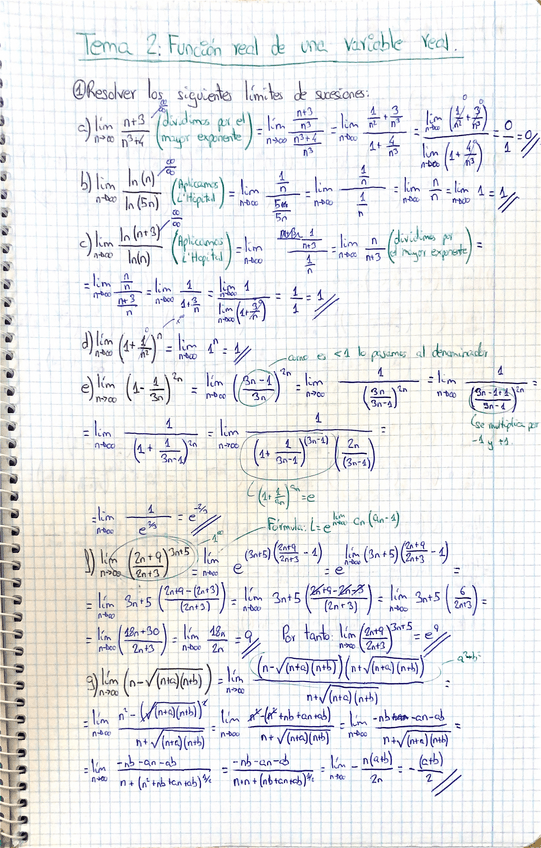 Tema 2: Función real de una variable real.
① Resolver los siguientes límites de sucesiones:
a) lím n→∞ (n+3)/(n³+4) ∞/∞ (dividimos por el mayor exponente) = lím n→∞ ((n+3)/n³)/((n³+4)/n³) = lím n→∞ (1/n² + 3/n³)/(1 + 4/n³) = lím n→∞ (1/n² + 3/n³)/lím n→∞ (1 + 4/n³) = 0/1 = 0//
b) lím n→∞ ln(n)/ln(5n) ∞/∞ (Aplicamos L'Hôpital) = lím n→∞ (1/n)/(5/5n) = lím n→∞ (1/n)/(1/n) = lím n→∞ n/n = lím n→∞ 1 = 1//
c) lím n→∞ ln(n+3)/ln(n) ∞/∞ (Aplicamos L'Hôpital) = lím n→∞ (1/(n+3))/(1/n) = lím n→∞ n/(n+3) (dividimos por el mayor exponente) =
= lím n→∞ (n/n)/((n+3)/n) = lím n→∞ 1/(1+3/n) = lím n→∞ 1/lím n→∞ (1+3/n) = 1/1 = 1//
d) lím n→∞ (1+1/n²)ⁿ = lím n→∞ 1ⁿ = 1//
como es <1 lo pasamos al denominador
e) lím n→∞ (1 - 1/3n)^2n = lím n→∞ ((3n-1)/3n)^2n = lím n→∞ 1/(3n/(3n-1))^2n = lím n→∞ 1/((3n-1+1)/(3n-1))^2n =
(se multiplica por -1 y +1
= lím n→∞ 1/(1 + 1/(3n-1))^2n = lím n→∞ 1/(1 + 1/(3n-1))^(3n-1)(2n/(3n-1)) =
(1 + 1/an)^an = e
= lím n→∞ 1/e^2/3 = e^-2/3//
Fórmula: L = e^lím n→∞ cn(an-1)
f) lím n→∞ ((2n+9)/(2n+3))^3n+5 1^∞ = lím n→∞ e^(3n+5)((2n+9)/(2n+3) - 1) = e^lím n→∞ (3n+5)((2n+9)/(2n+3) - 1) =
= lím n→∞ 3n+5 ((2n+9-(2n+3))/(2n+3)) = lím n→∞ 3n+5 ((2n+9-2n-3)/(2n+3)) = lím n→∞ 3n+5 (6/(2n+3)) =
= lím n→∞ (18n+30)/(2n+3) = lím n→∞ 18n/2n = 9// Por tanto: lím n→∞ ((2n+9)/(2n+3))^3n+5 = e⁹//
g) lím n→∞ (n-√(n+a)(n+b)) = lím n→∞ (n-√(n+a)(n+b))(n+√(n+a)(n+b))/(n+√(n+a)(n+b)) =
= lím n→∞ (n²-(√(n+a)(n+b))²)/(n+√(n+a)(n+b)) = lím n→∞ (n²-(n²+nb+an+ab))/(n+√(n+a)(n+b)) = lím n→∞ (-nb-an-ab)/(n+√(n+a)(n+b)) =
= lím n→∞ (-nb-an-ab)/(n+(n²+nb+an+ab)^1/2) = (-nb-an-ab)/(n+n+(nb+an+ab)^1/2) = lím n→∞ -n(a+b)/2n = -(a+b)/2//